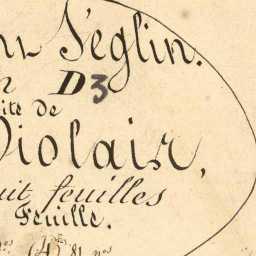 Séglin.
D3
ite de
Violair,
uit feuilles
Feuille.